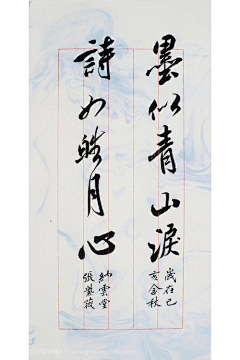 墨似青山淚
歲在己
亥金秋
詩如皓月心
納雲堂
張紫薇